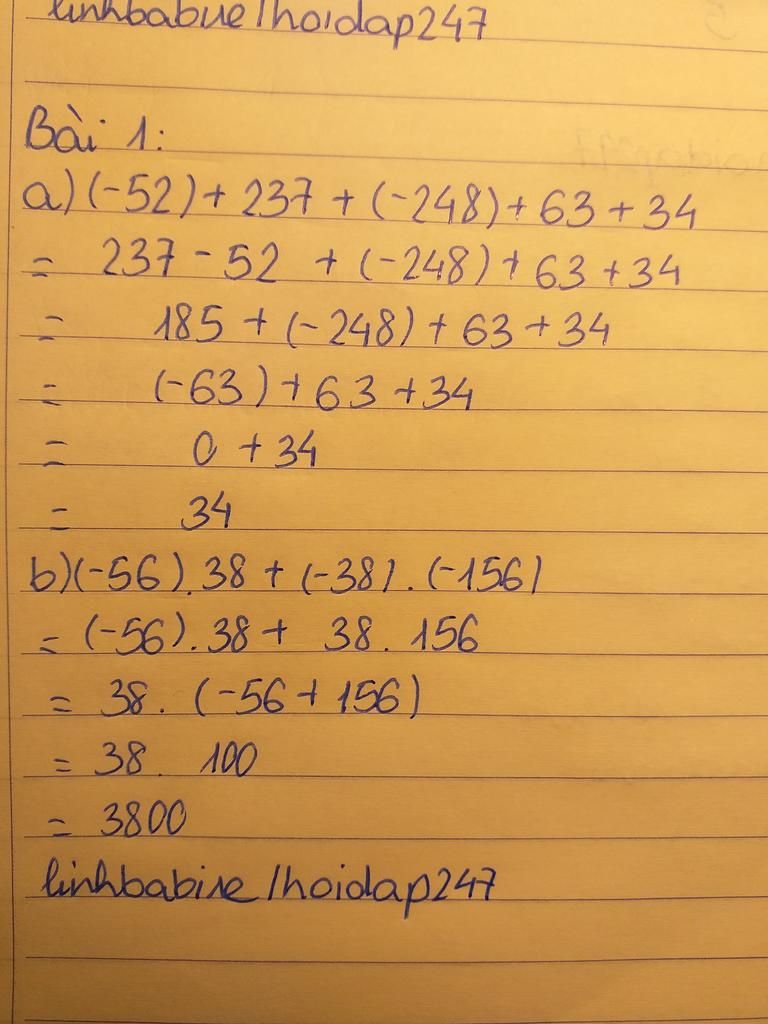 linhbabiie/hoidap247
Bài 1:
a) (-52) + 237 + (-248) + 63 + 34
= 237 - 52 + (-248) + 63 + 34
= 185 + (-248) + 63 + 34
= (-63) + 63 + 34
= 0 + 34
= 34
b) (-56) . 38 + (-38) . (-156)
= (-56) . 38 + 38 . 156
= 38 . (-56 + 156)
= 38 . 100
= 3800
linhbabiie/hoidap247